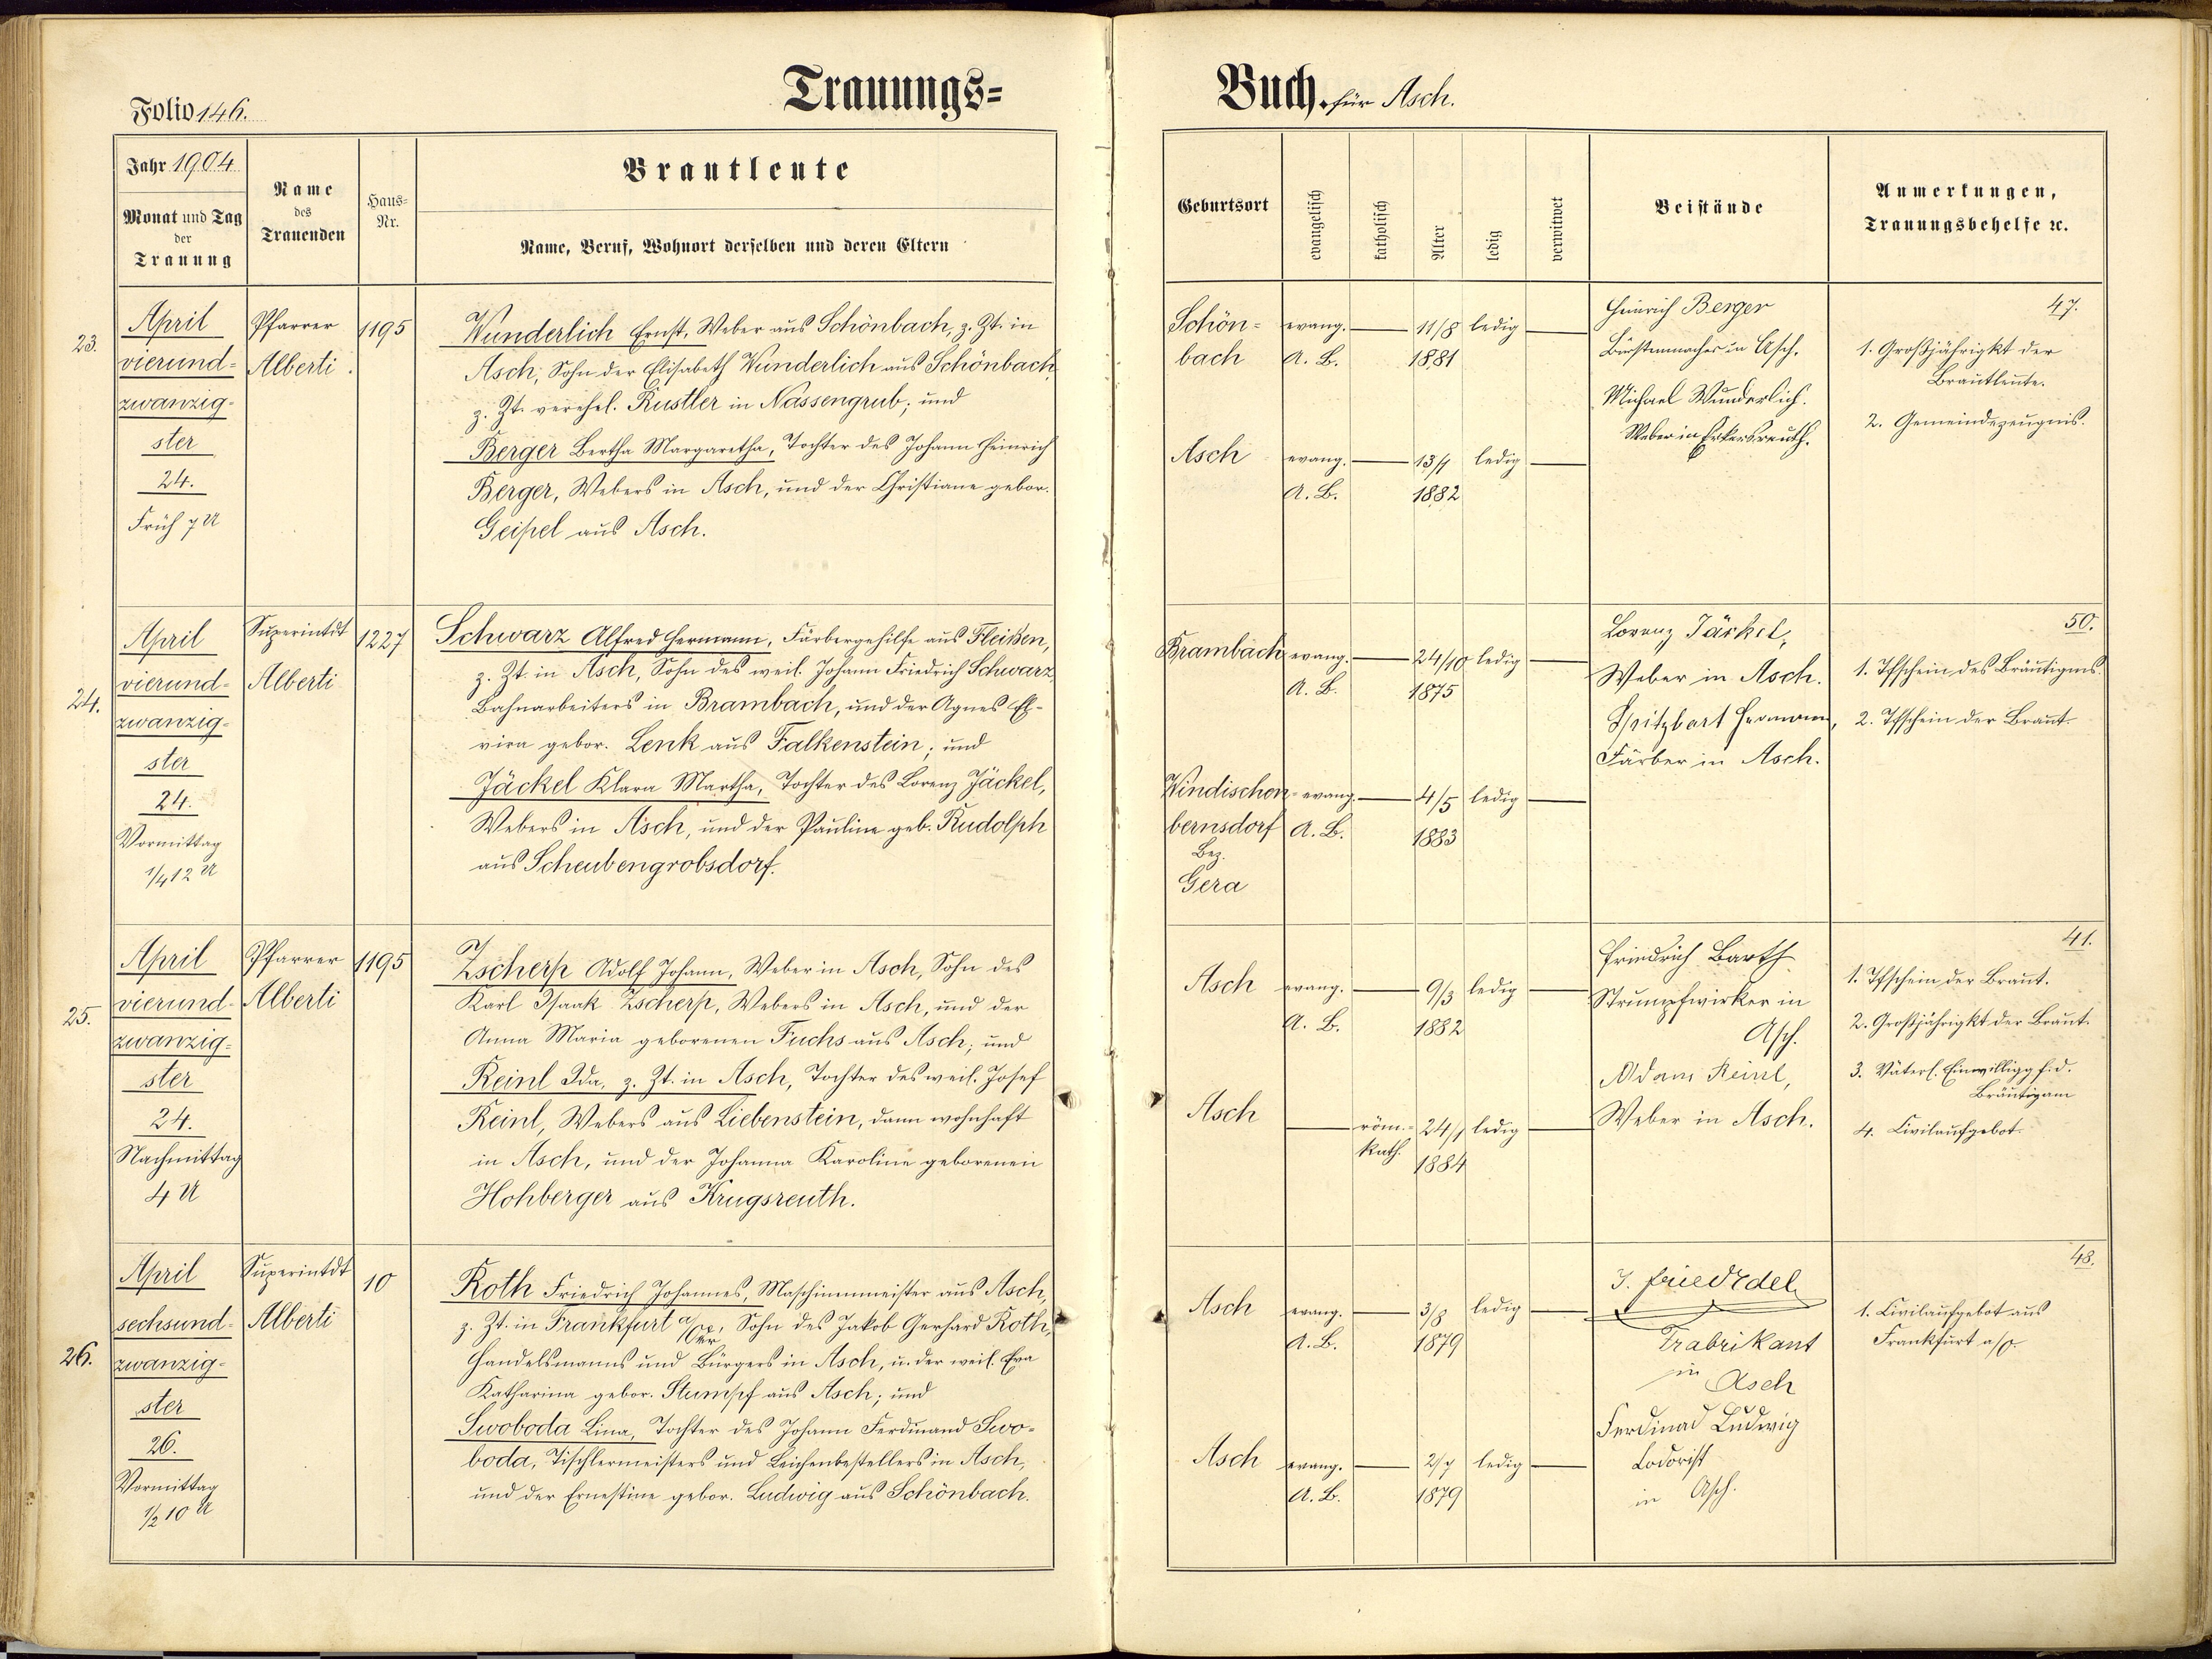 Trauungs=
Buch. für Asch.
Folio 146.
Jahr 1904
Monat und Tag
der
Trauung
Name
des
Trauenden
Haus=
Nr.
Brautleute
Name, Beruf, Wohnort derselben und deren Eltern
Geburtsort
evangelisch
katholisch
Alter
ledig
verwitwet
Beistände
Anmerkungen,
Trauungsbehelfe ꝛc.
23.
April
vierund=
zwanzig=
ster
24.
Früh 7 U
Pfarrer
Alberti.
1195
Wunderlich Ernst, Weber aus Schönbach, z. Zt. in
Asch, Sohn der Elisabeth Wunderlich aus Schönbach,
z. Zt. verehel. Rustler in Nassengrub; und
Berger Bertha Margaretha, Tochter des Johann Heinrich
Berger, Webers in Asch, und der Christiane gebor.
Geipel aus Asch.
Schön=
bach
evang.
A. B.
11/8
1881
ledig
Asch
evang.
A. B.
13/9
1882
ledig
Heinrich Berger
Bürstenmacher in Asch.
Michael Wunderlich.
Weber in Erkersreuth.
47.
1. Großjährigkt der
Brautleute.
2. Gemeindezeugnis.
24.
April
vierund=
zwanzig=
ster
24.
Vormittag
1/4 12 U
Superintdt
Alberti
1227
Schwarz Alfred Hermann, Färbergehilfe aus Fleißen,
z. Zt. in Asch, Sohn des weil. Johann Friedrich Schwarz,
Bahnarbeiters in Brambach, und der Agnes El=
vira gebor. Lenk aus Falkenstein; und
Jäckel Klara Martha, Tochter des Lorenz Jäckel,
Webers in Asch, und der Pauline geb. Rudolph
aus Scheubengrobsdorf.
Brambach
evang.
A. B.
24/10
1875
ledig
Windischen=
bernsdorf
Bez.
Gera
evang.
A. B.
4/5
1883
ledig
Lorenz Jäckel,
Weber in Asch.
Spitzbart Hermann,
Färber in Asch.
50.
1. Tfschein des Bräutigms.
2. Tfschein der Braut.
25.
April
vierund=
zwanzig=
ster
24.
Nachmittag
4 U
Pfarrer
Alberti
1195
Zscherp Adolf Johann, Weber in Asch, Sohn des
Karl Isaak Zscherp, Webers in Asch, und der
Anna Maria geborenen Fuchs aus Asch; und
Reinl Ida, z. Zt. in Asch, Tochter des weil. Josef
Reinl, Webers aus Liebenstein, dann wohnhaft
in Asch, und der Johanna Karoline geborenen
Hohberger aus Krugsreuth.
Asch
evang.
A. B.
9/3
1882
ledig
Asch
röm.=
kath.
24/1
1884
ledig
Friedrich Barth
Strumpfwirker in
Asch.
Adam Reinl,
Weber in Asch.
41.
1. Tfschein der Braut.
2. Großjährigkt der Braut.
3. Väterl. Einwilligg f. d.
Bräutigam
4. Civilaufgebot.
26.
April
sechsund=
zwanzig=
ster
26.
Vormittag
1/2 10 U
Superintdt
Alberti
10
Roth Friedrich Johannes, Maschinenmeister aus Asch,
z. Zt. in Frankfurt a/Oder, Sohn des Jakob Gerhard Roth,
Handelsmanns und Bürgers in Asch, u. der weil. Eva
Katharina gebor. Stumpf aus Asch; und
Swoboda Lina, Tochter des Johann Ferdinand Swo=
boda, Tischlermeisters und Leichenbestellers in Asch,
und der Ernestine gebor. Ludwig aus Schönbach.
Asch
evang.
A. B.
3/8
1879
ledig
Asch
evang.
A. B.
2/7
1879
ledig
Fabrikant
in
Asch
Ferdinad Ludwig
in Asch.
48.
1. Civilaufgebot aus
Frankfurt a/O.